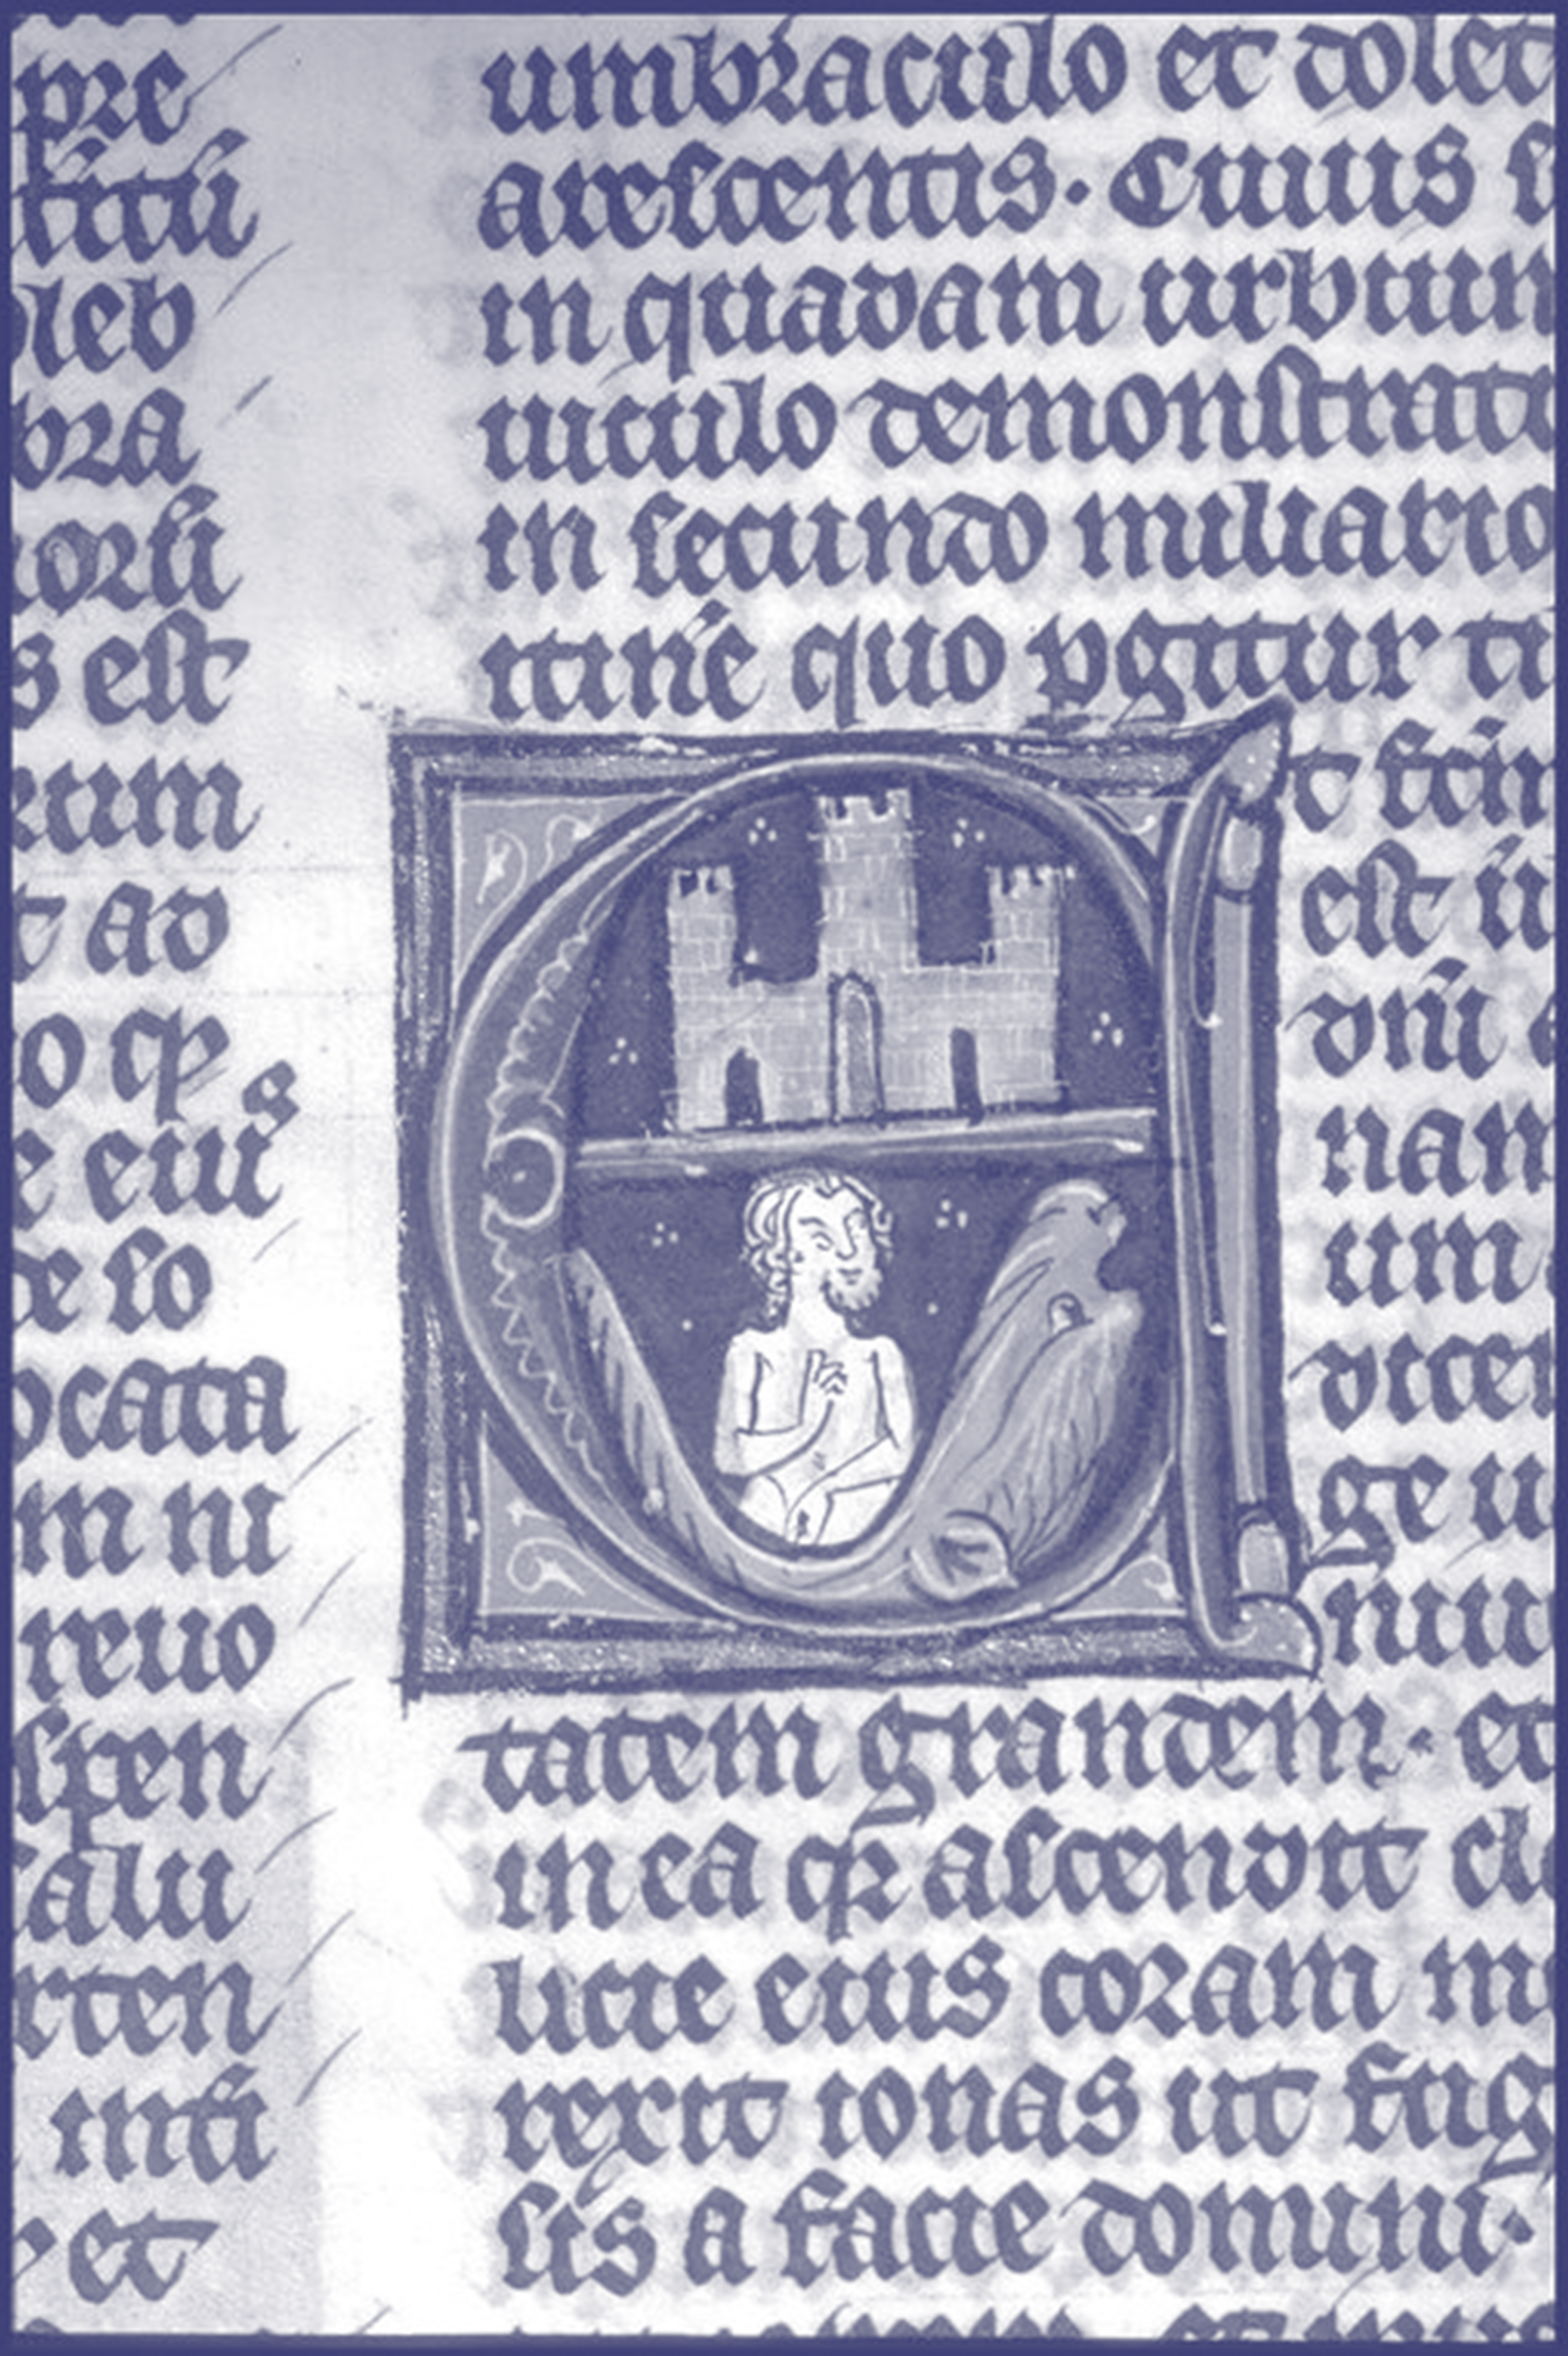 pre
titū
pleb
bra
iorū
s est
eum
t ad
o qƺ
e eiꝰ
de so
ocata
m ni
reuo
spen
salu
rten
inti
et
umbraculo et dolet
arescentis. Cuius s
in quadam urbium
uiculo demonstrat
in secundo miliario
itine quo pgitur ti
Et fcm
est ū
dnī
nam
um
dicen
ge u
niu
tatem grandem. et
in ea qꝛ ascendit
licie eius coram m
rexit ionas ut fug
sis a facie domini.